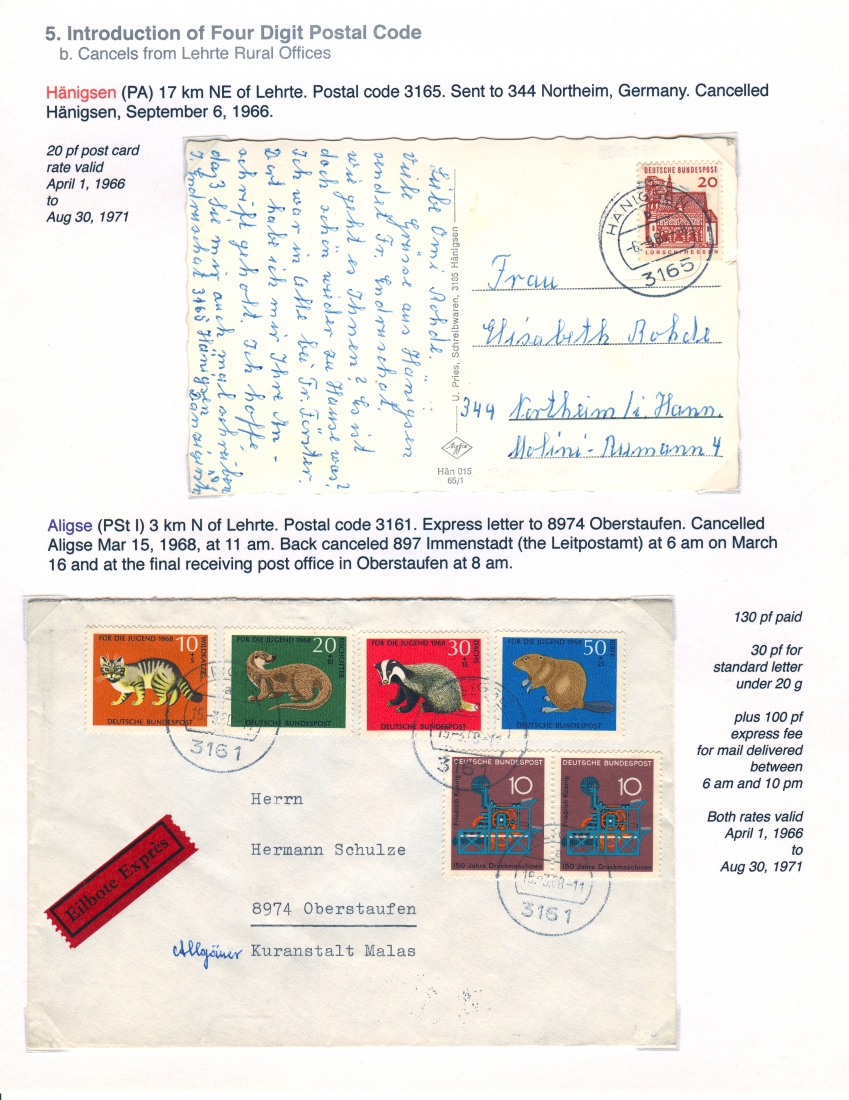 5. Introduction of Four Digit Postal Code
b. Cancels from Lehrte Rural Offices
Hänigsen (PA) 17 km NE of Lehrte. Postal code 3165. Sent to 344 Northeim, Germany. Cancelled
Hänigsen, September 6, 1966.
20 pf post card
rate valid
April 1, 1966
to
Aug 30, 1971
Liebe Omi Rohde.
Viele Grüsse aus Hänigsen
sendet Fr. Endruschat.
wie geht es Ihnen? Es ist
doch schön wieder zu Hause was?
Ich war in Celle bei Fr. Förster.
Dort habe ich mir Ihre An-
schrift geholt. Ich hoffe
daß Sie mir auch mal schreiben
Endruschat 3165 Hänigsen
U. Pries, Schreibwaren, 3165 Hänigsen
Agfa
Hän 015
65/1
DEUTSCHE BUNDESPOST
20
LORSCH/HESSEN
HÄNIGSEN
3165
Frau
Elisabeth Rohde
344 Northeim i. Hann.
4
Aligse (PSt I) 3 km N of Lehrte. Postal code 3161. Express letter to 8974 Oberstaufen. Cancelled
Aligse Mar 15, 1968, at 11 am. Back canceled 897 Immenstadt (the Leitpostamt) at 6 am on March
16 and at the final receiving post office in Oberstaufen at 8 am.
FÜR DIE JUGEND 1968
10
+5
WILDKATZE
DEUTSCHE BUNDESPOST
FÜR DIE JUGEND 1968
20
+10
FISCHOTTER
DEUTSCHE BUNDESPOST
FÜR DIE JUGEND 1968
30
+15
DACHS
DEUTSCHE BUNDESPOST
FÜR DIE JUGEND 1968
50
+25
BIBER
DEUTSCHE BUNDESPOST
15.-3.68-11
3161
15.-3.68-11
DEUTSCHE BUNDESPOST
10
Friedrich Koenig
150 Jahre Druckmaschinen
DEUTSCHE BUNDESPOST
10
Friedrich Koenig
150 Jahre Druckmaschinen
15.-3.68-11
3161
Eilbote Exprès
Herrn
Hermann Schulze
8974 Oberstaufen
Allgäuer Kuranstalt Malas
130 pf paid
30 pf for
standard letter
under 20 g
plus 100 pf
express fee
for mail delivered
between
6 am and 10 pm
Both rates valid
April 1, 1966
to
Aug 30, 1971